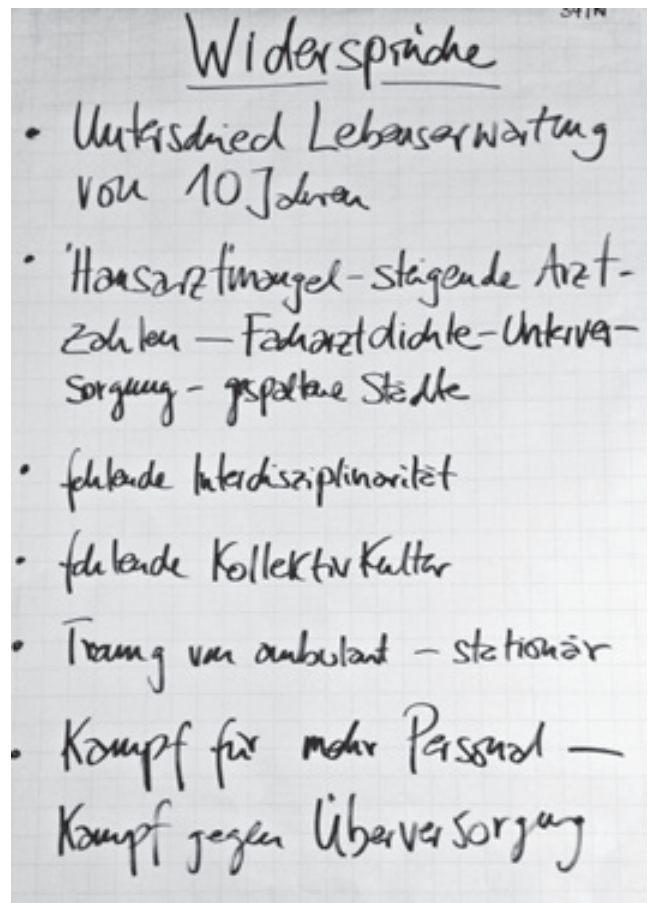 Widersprüche
• Unterschied Lebenserwartung
von 10 Jahren
• "Hausarzt"mangel - steigende Arzt-
zahlen — Facharztdichte - Unterver-
sorgung - gespaltene Städte
• fehlende Interdisziplinarität
• fehlende Kollektivkultur
• Trennung von ambulant - stationär
• Kampf für mehr Personal —
Kampf gegen Überversorgung